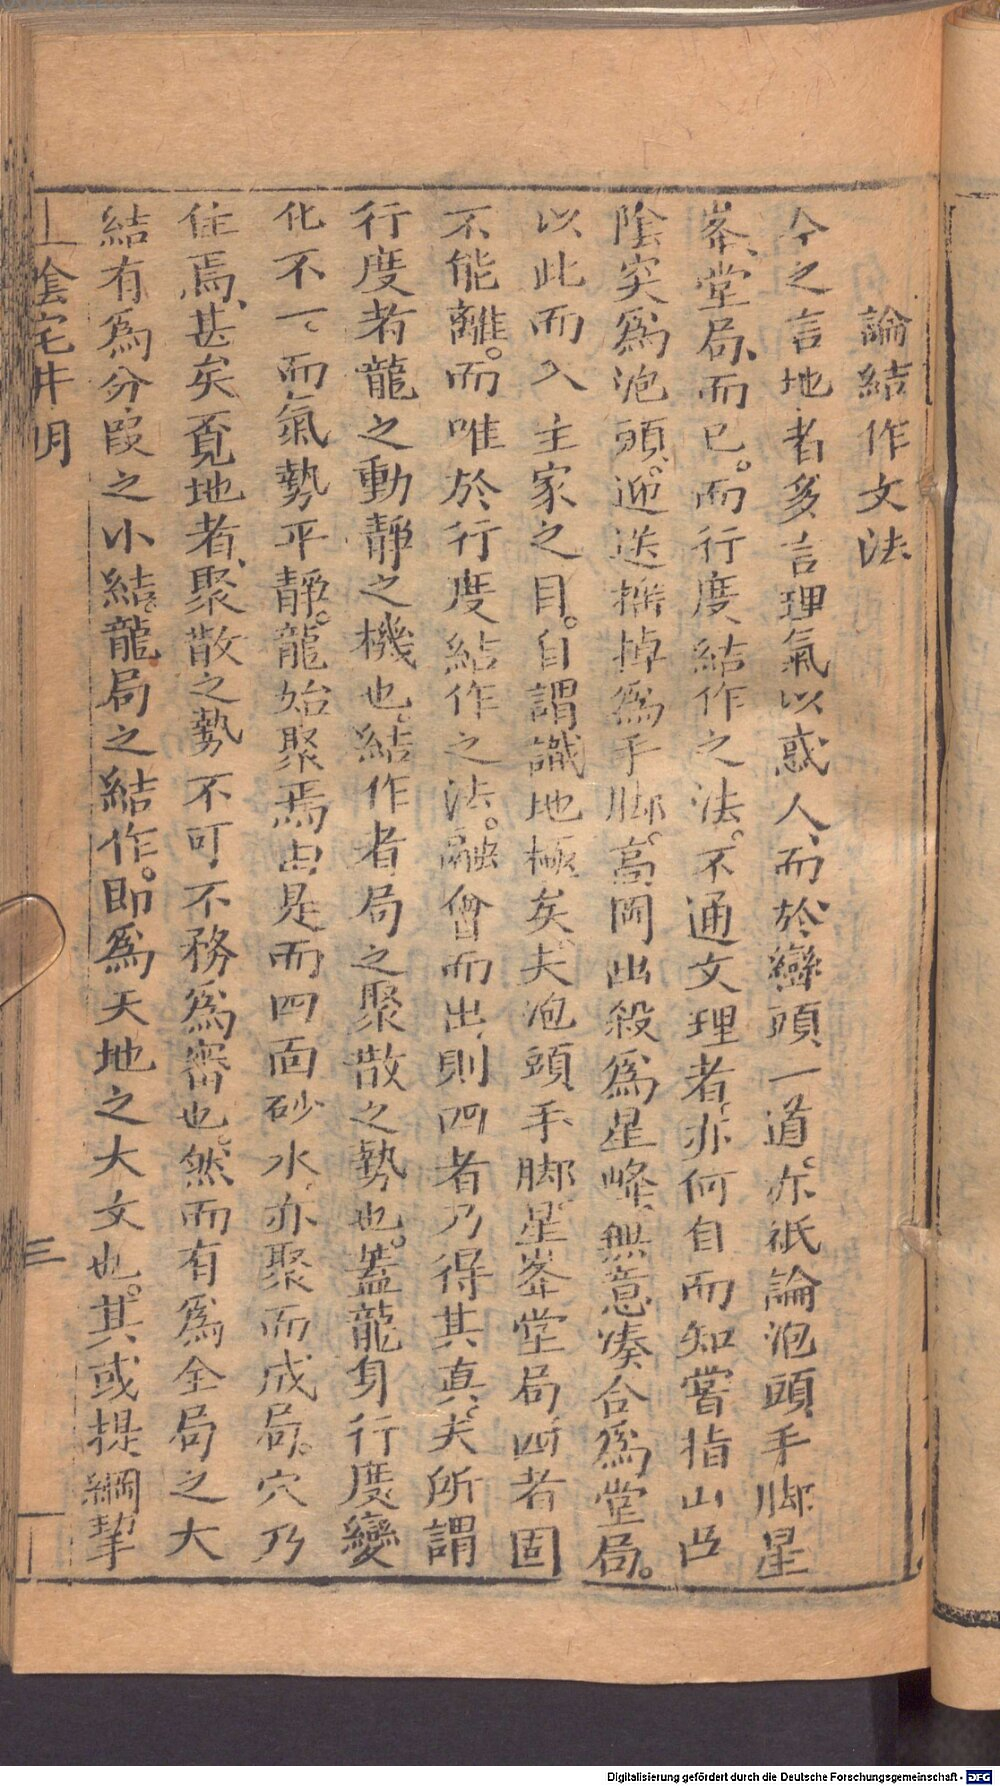 論結作文法
今之言地者多言理氣以惑人、而於巒頭一道、亦祇論泡頭手脚星
峯、堂局、而已。而行度結作之法。不通文理者、亦何自而知嘗指山凸
陰突爲泡頭。迎送橈掉爲手脚。高岡出殺爲星峰、無意湊合爲堂局。
以此而入主家之目。自謂識地極矣。夫泡頭手脚星峯堂局四者固
不能離。而唯於行度結作之法。融會而出、則四者乃得其真、夫所謂
行度者龍之動靜之機也。結作者局之聚散之勢也。蓋龍身行度變
化不一。而氣勢平靜。龍始聚焉由是而四面砂水、亦聚而成局。穴乃
住焉、甚矣覓地者、聚散之勢不可不務爲審也。然而有爲全局之大
結有爲分段之小結。龍局之結作。即爲天地之大文也。其或提綱挈
陰宅井明
三
Digitalisierung gefördert durch die Deutsche Forschungsgemeinschaft - DFG